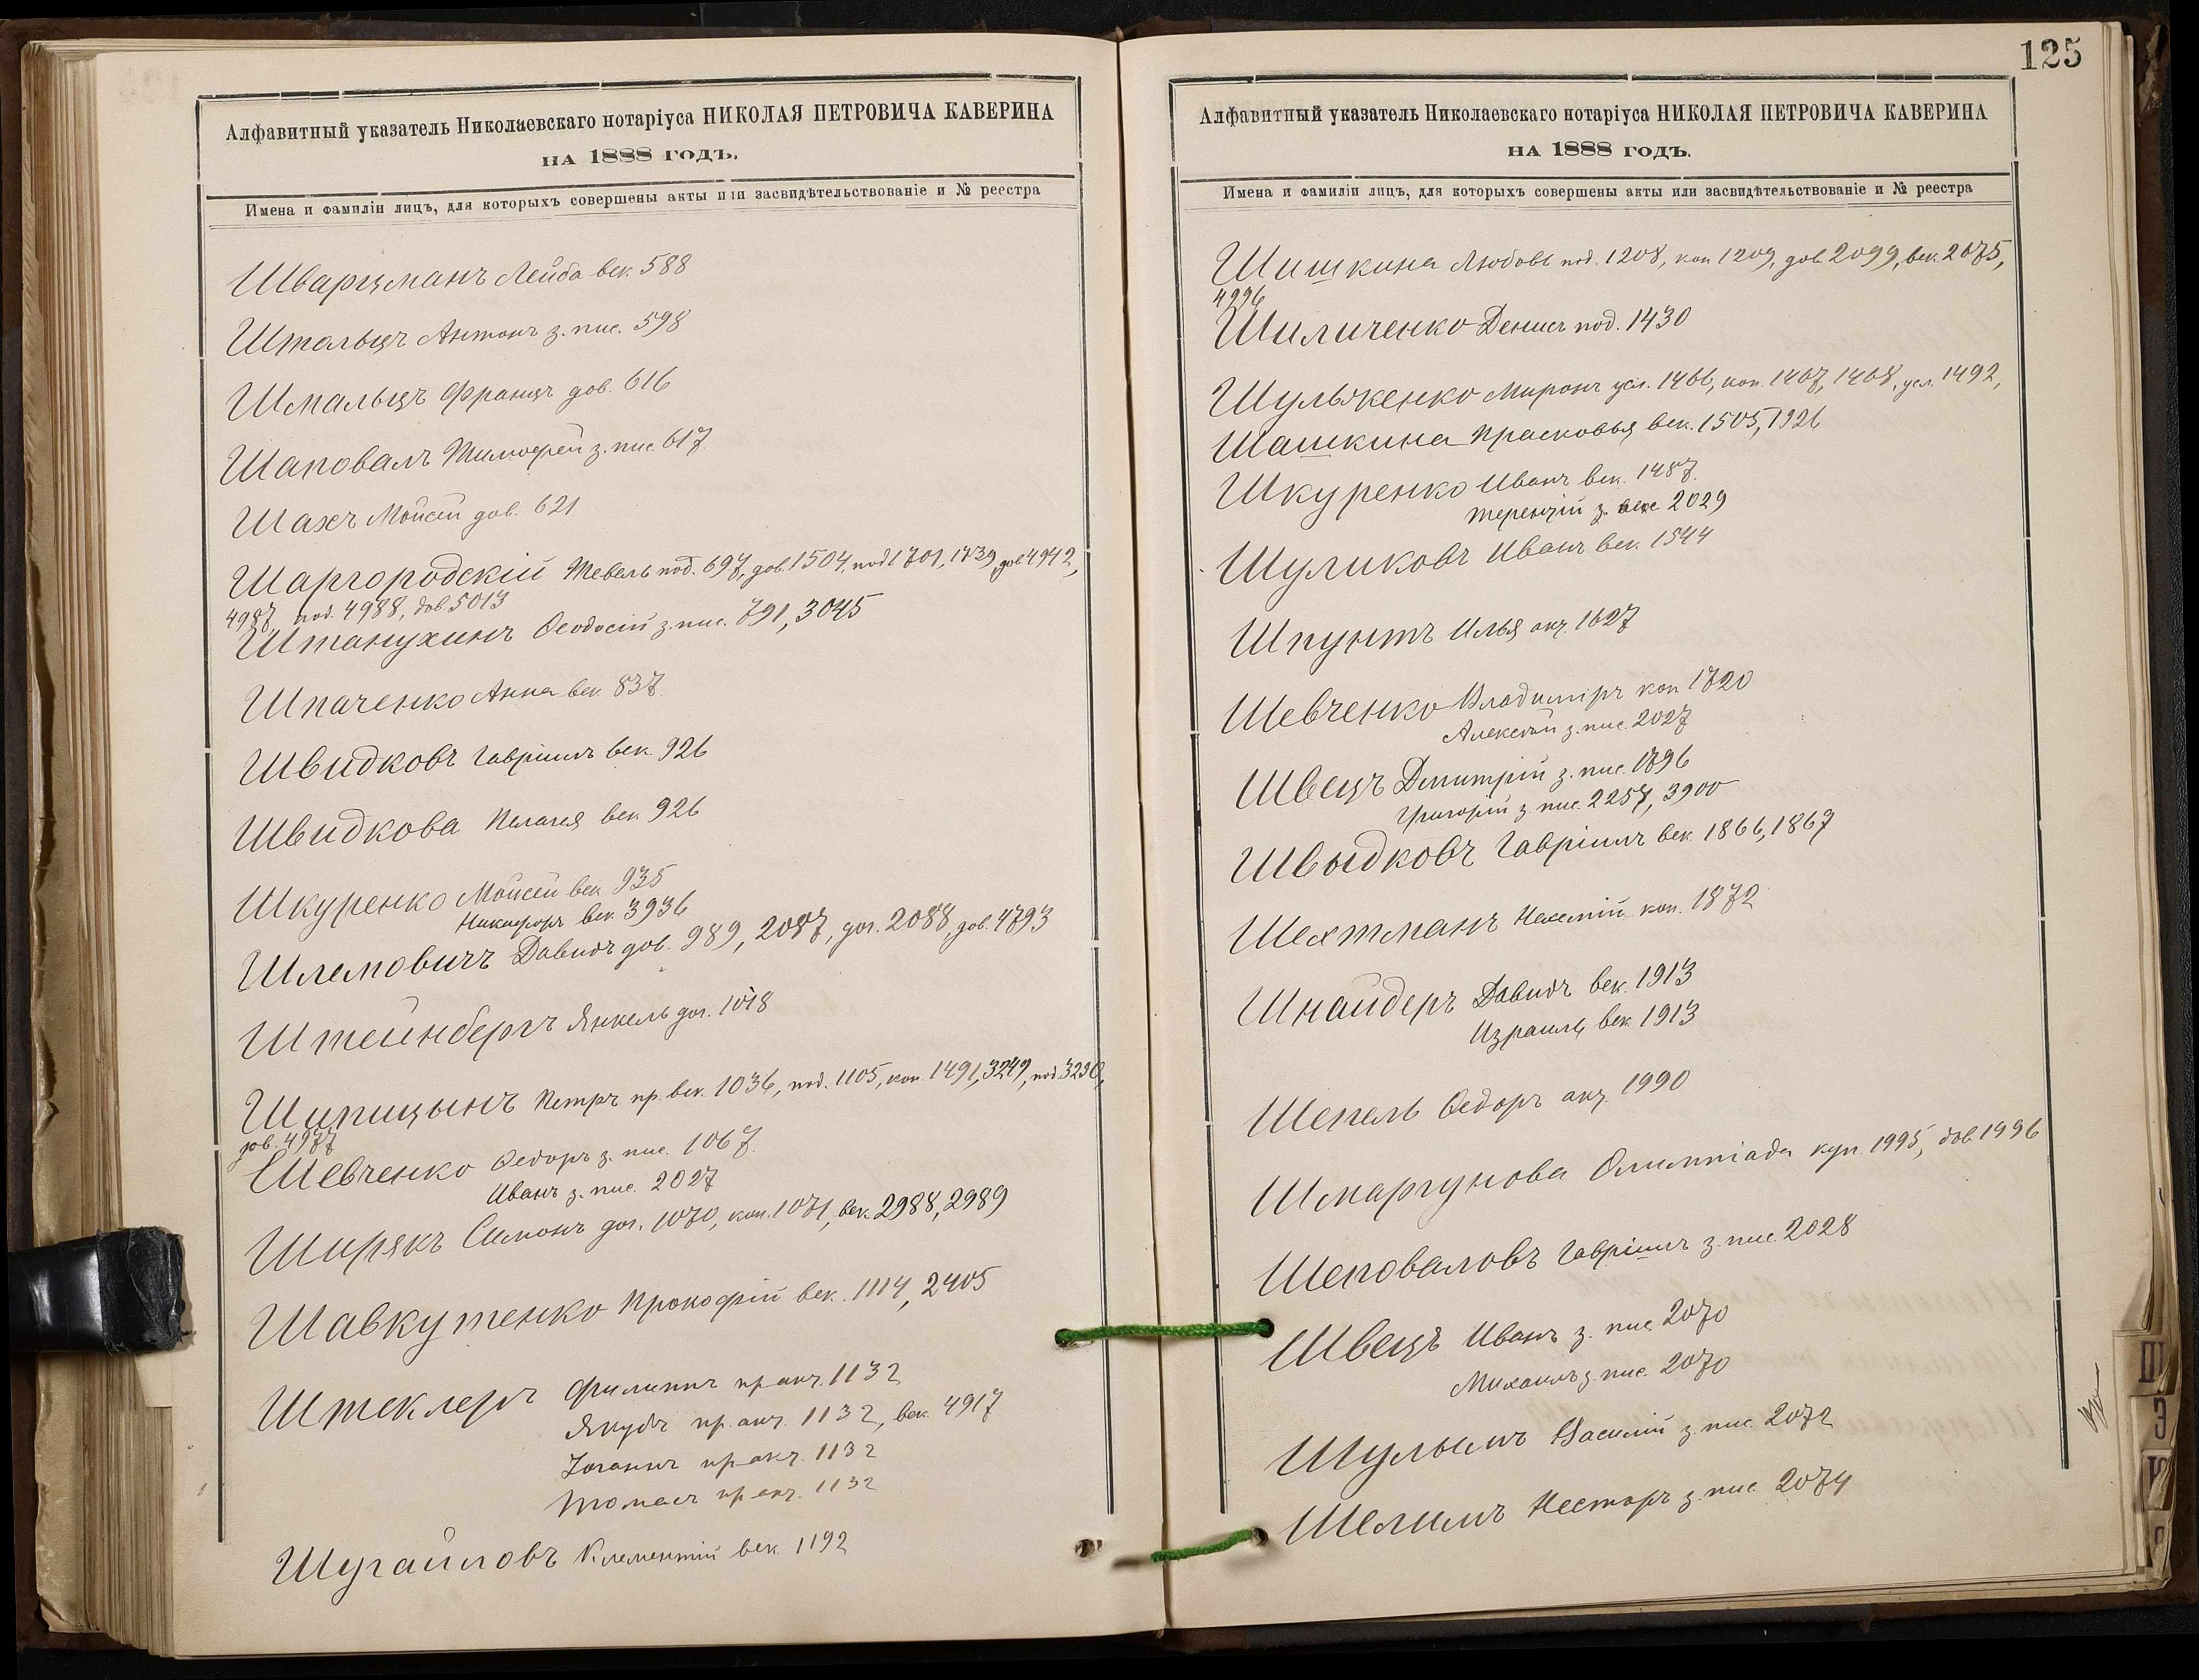 Алфавитный указатель Николаевскаго нотаріуса НИКОЛАЯ ПЕТРОВИЧА КАВЕРИНА
НА 1888 ГОДЪ.
Имена и фамиліи лицъ, для которыхъ совершены акты или засвидѣтельствованіе и № реестра
Шварцманъ Лейба век. 588
Штальцъ Антонъ з. пис. 598
Шмальцъ Францъ дов. 616
Шаповалъ Тимофей з. пис. 617.
Шахъ Мойсей дов. 621
Шаргородскій Тевель под. 697, дов. 1504, под 1701, 1739, дов 4942,
4987, под. 4988, дов 5013
Штанухинъ Ѳеодосій з. пис. 791, 3045
Шпаченко Анна век. 837.
Швидковъ Гавріилъ век. 926
Швидкова Пелагея век 926
Шкуренко Мойсей век 935
Никифоръ век. 3936
Шлемовичъ Давидъ дов. 989, 2087, дог. 2088, дов. 4793
Штейнбергъ Янкель дог. 1018
Шипицынъ Петръ пр. век. 1036, под. 1105, коп. 1491, 3249, под. 3290,
дов. 4977
Шевченко Ѳедоръ з. пис. 1067.
Иванъ з. пис. 2027
Ширякъ Симонъ дог. 1070, коп. 1071, век. 2988, 2989
Шавкутенко Прокофій век. 1114, 2405
Штеклеръ Филиппъ пр акч. 1132
Якубъ пр. акч. 1132, век. 4917
Іоганнъ пр акч. 1132
Томасъ пр акч. 1132
Шугайловъ Климентій век. 1192
125
Алфавитный указатель Николаевскаго нотаріуса НИКОЛАЯ ПЕТРОВИЧА КАВЕРИНА
НА 1888 ГОДЪ.
Имена и фамиліи лицъ, для которыхъ совершены акты или засвидѣтельствованіе и № реестра
Шишкина Любовь под. 1208, коп 1209, дов 2099, век. 2075,
4996
Шиличенко Денисъ под. 1430
Шульженко Миронъ усл. 1466, коп. 1467, 1468, усл. 1492,
Шашкина Прасковья век. 1505, 1926
Шкуренко Иванъ век. 1487.
Терентій з. 2029
Шуликовъ Иванъ век. 1544
Шпунтъ Илья акч. 1627
Шевченко Владиміръ коп 1720
Алексѣй з. пис. 2027
Швецъ Дмитрій з. пис. 1896
Григорій з пис 2257, 3900
Швыдковъ Гавріилъ век. 1866, 1867
Шехтманъ коп. 1872
Шнайдеръ Давидъ век. 1913
Израиль век. 1913
Шепель Ѳедоръ акч. 1990
Шмаргунова Олимпіада куп. 1995, дов 1996
Шеповаловъ Гавріилъ з. пис. 2028
Швецъ Иванъ з. пис 2070
Михаилъ з. пис. 2070
Шулымъ Василій з. пис. 2072
Шелимъ Несторъ з. пис 2074
Ш
Э